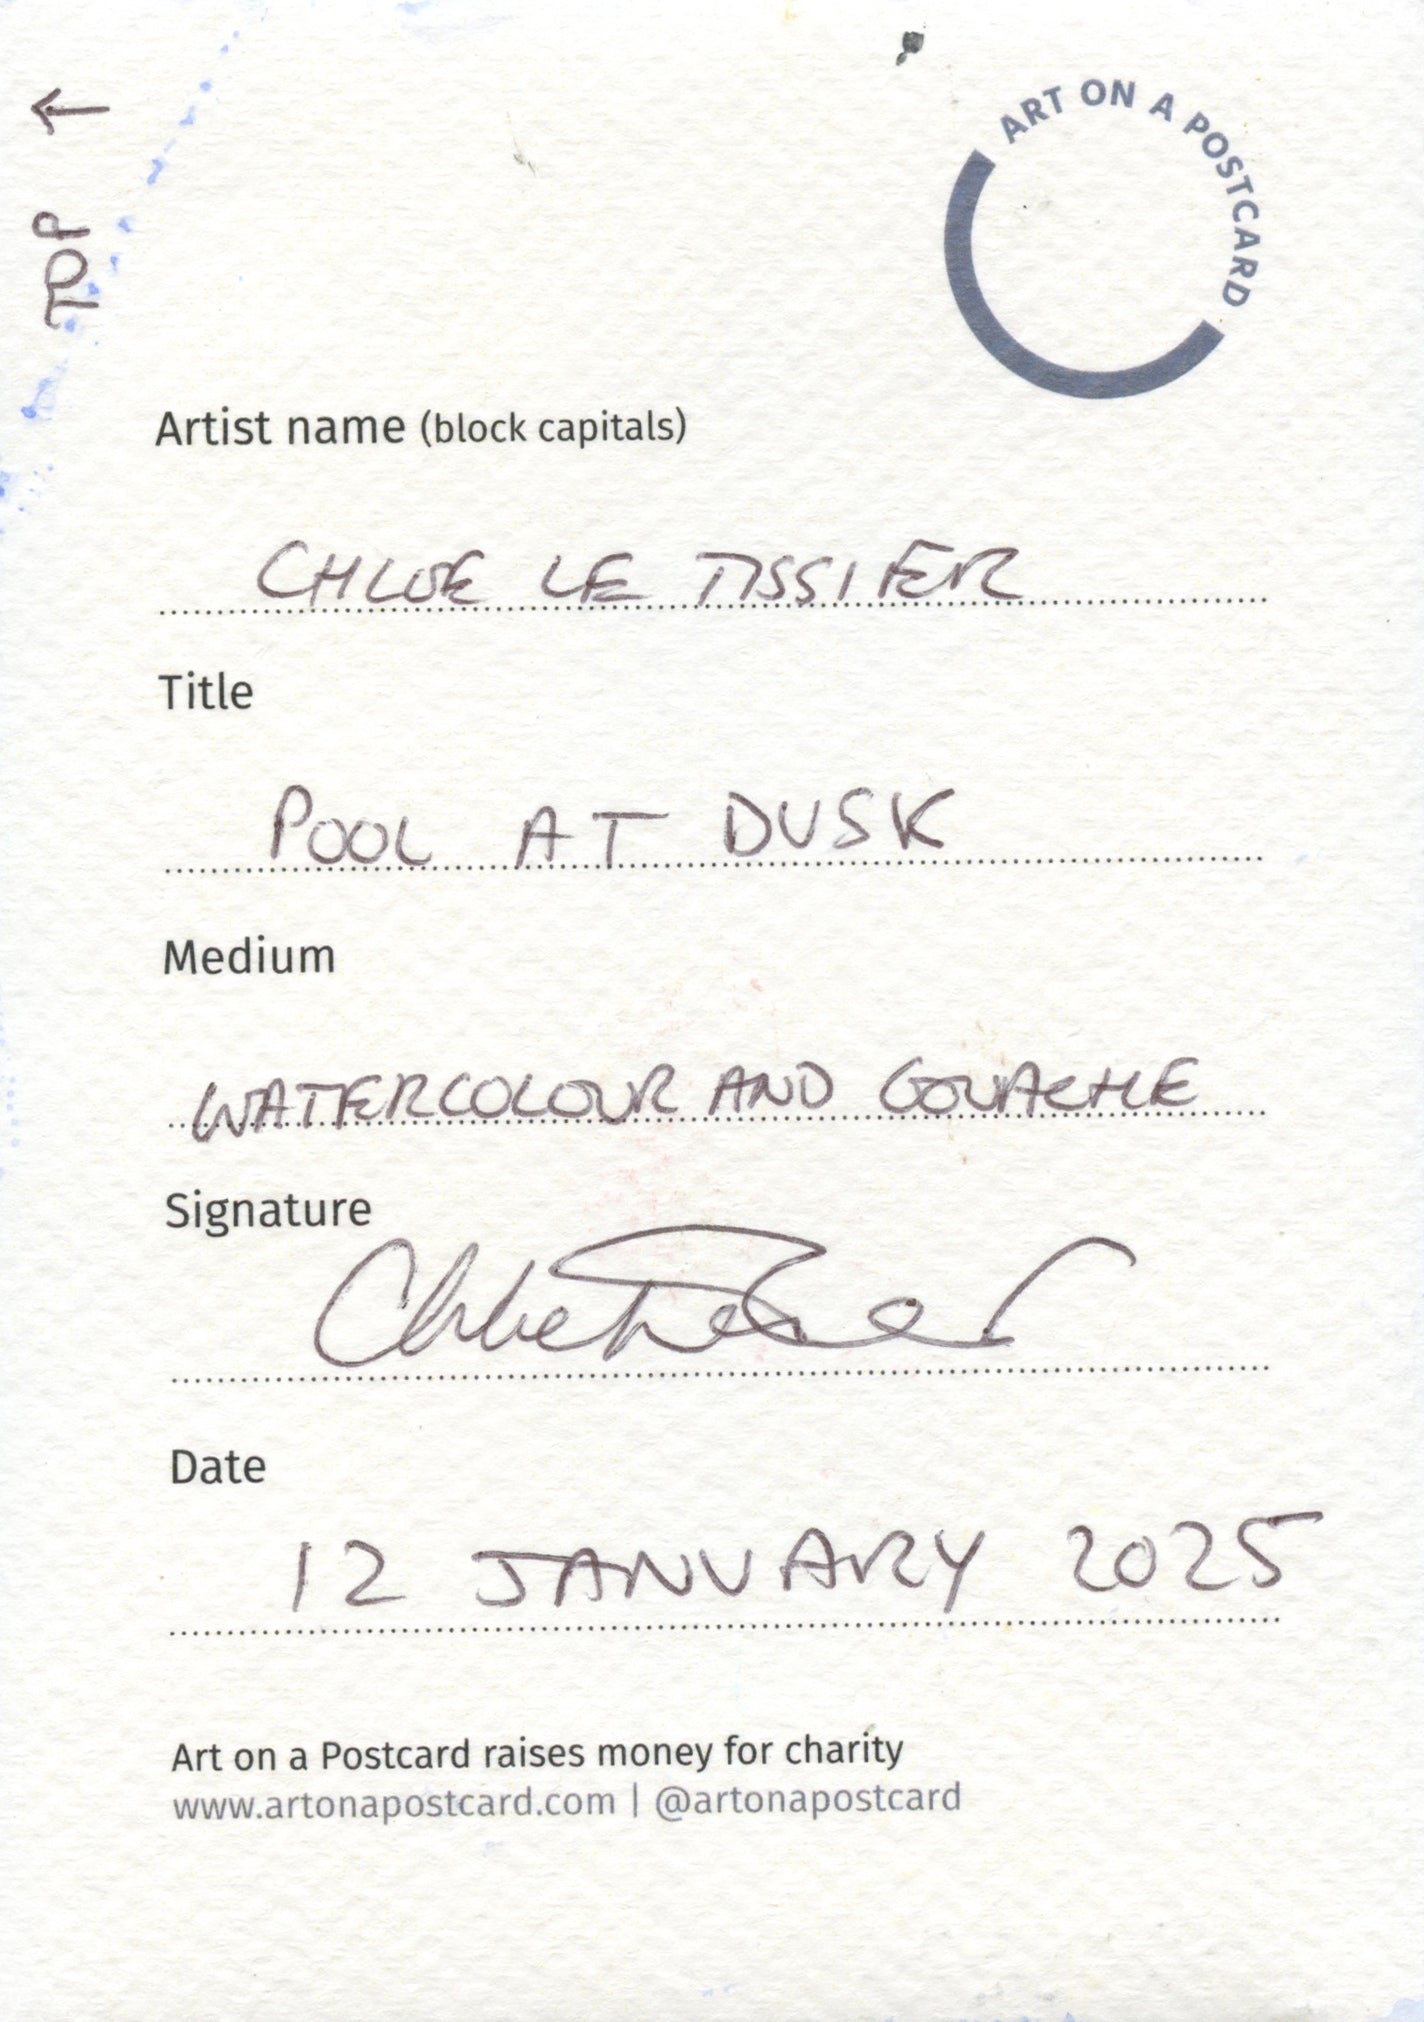 ← TOP
ART ON A POSTCARD
Artist name (block capitals)
CHLOE LE TISSIER
Title
POOL AT DUSK
Medium
WATERCOLOUR AND GOUACHE
Signature
Date
12 JANUARY 2025
Art on a Postcard raises money for charity
www.artonapostcard.com | @artonapostcard